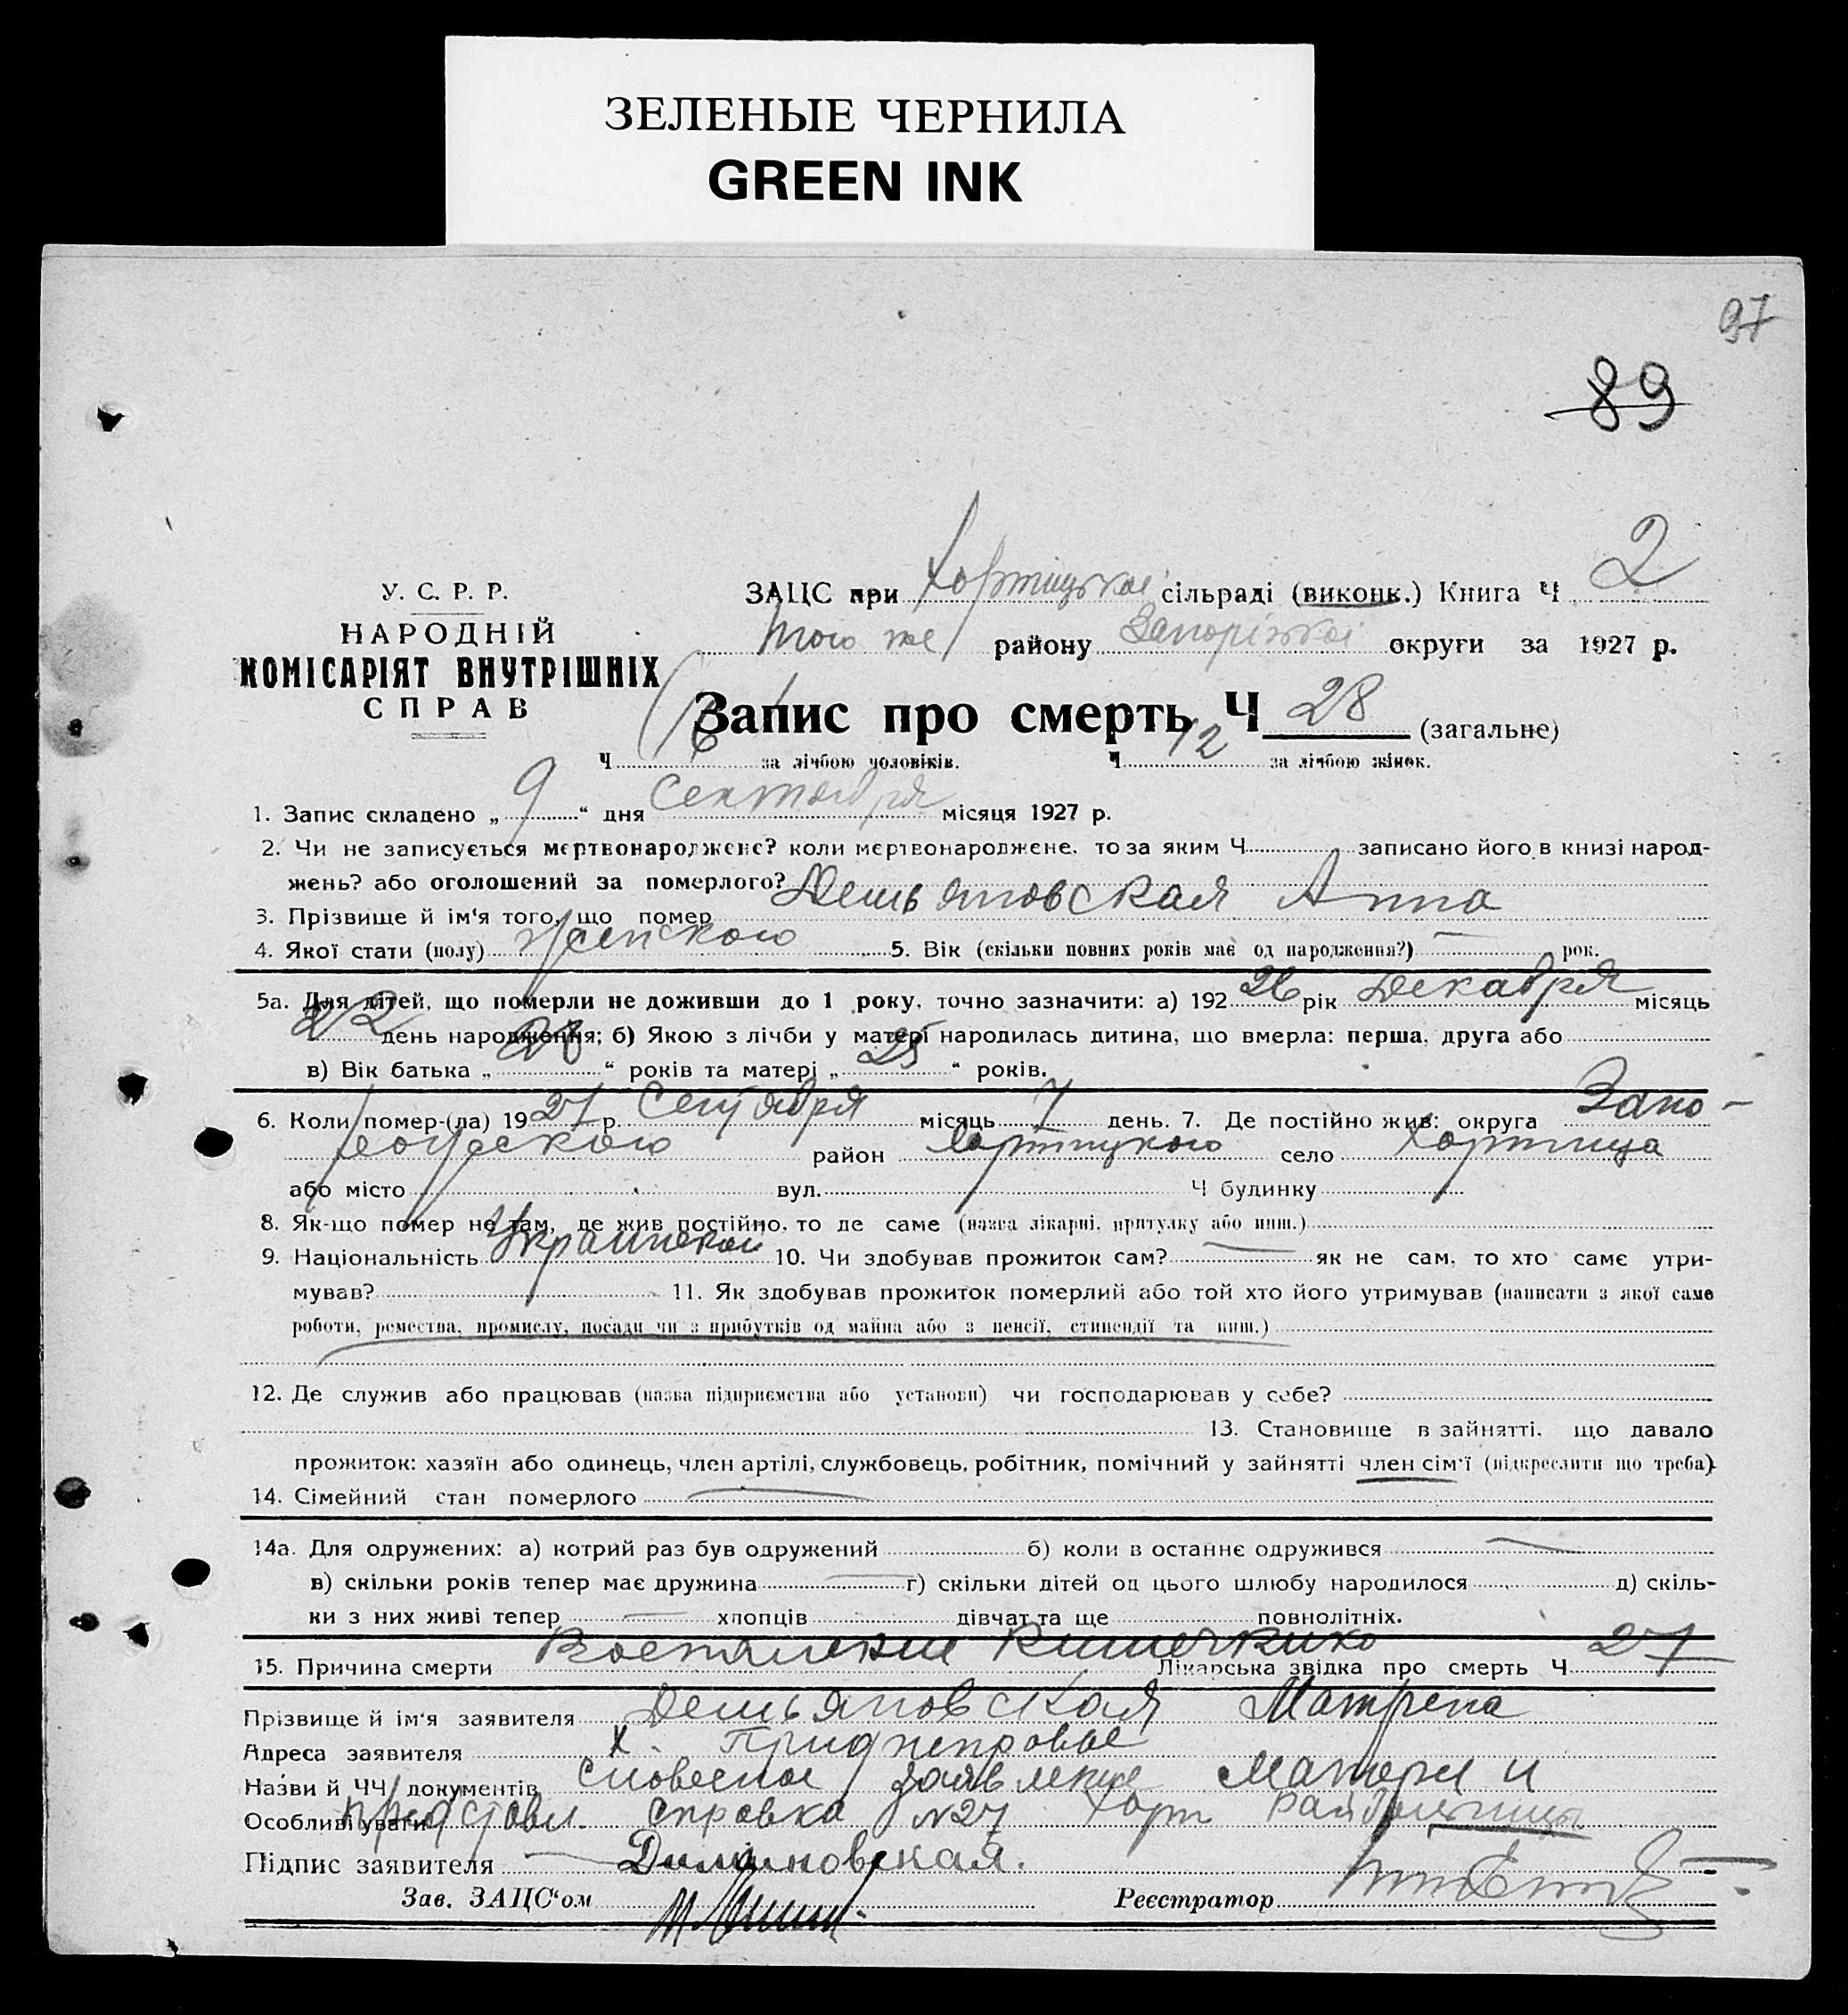 ЗЕЛЕНЫЕ ЧЕРНИЛА
GREEN INK
97
89
У. С. Р. Р.
НАРОДНІЙ
КОМІСАРІЯТ ВНУТРІШНІХ
СПРАВ
ЗАЦС при Хортицької сільраді (виконк.) Книга Ч 2
того же району Запоріжкої округи за 1927 р.
Запис про смерть Ч 28 (загальне)
Ч 16 за лічбою чоловіків. Ч 12 за лічбою жінок.
1. Запис складено „ 9 “ дня Сентября місяця 1927 р.
2. Чи не записується мертвонароджене? коли мертвонароджене, то за яким Ч записано його в книзі народ-
жень? або оголошений за померлого?
3. Прізвище й ім‘я того, що помер Демьяновская Анна
4. Якої стати (полу) женского 5. Вік (скільки повних років має од народження?) — рок.
5а. Для дітей, що померли не доживши до 1 року, точно зазначити: а) 192 26 рік Декабря місяць
22 день народження; б) Якою з лічби у матері народилась дитина, що вмерла: перша, друга або
в) Вік батька „ 28 “ років та матері „ 25 “ років.
6. Коли помер-(ла) 19 27 р. Сентября місяць 7 день. 7. Де постійно жив: округа Запо-
рожского район Хортицкого село Хортица
або місто вул. Ч будинку
8. Як-що помер не там, де жив постійно, то де саме (назва лікарні, притулку або инш.)
9. Національність Украинской 10. Чи здобував прожиток сам? — як не сам, то хто саме утри-
мував? 11. Як здобував прожиток померлий або той хто його утримував (написати з якої саме
роботи, ремества, промислу, посади чи з прибутків од майна або з пенсії, стипендії та инш.)
12. Де служив або працював (назва підприємства або установи) чи господарював у себе?
13. Становище в зайнятті, що давало
прожиток: хазяїн або одинець, член артілі, службовець, робітник, помічний у зайнятті член сім‘ї (підкреслити що треба)
14. Сімейний стан померлого —
14а. Для одружених: а) котрий раз був одружений б) коли в останнє одружився —
в) скільки років тепер має дружина — г) скільки дітей од цього шлюбу народилося д) скіль-
ки з них живі тепер — хлопців дівчат та ще повнолітніх.
15. Причина смерти Воспаление Кишечника Лікарська звідка про смерть Ч 27
Прізвище й ім‘я заявителя Демьяновская Матрена
Адреса заявителя х. Приднепровье
Назви й ЧЧ документів Словесное заявление Матери и
Особливі уваги представл. справка №27 Хорт Райбольницы
Підпис заявителя Димяновская.
Зав. ЗАЦС‘ом Реєстратор